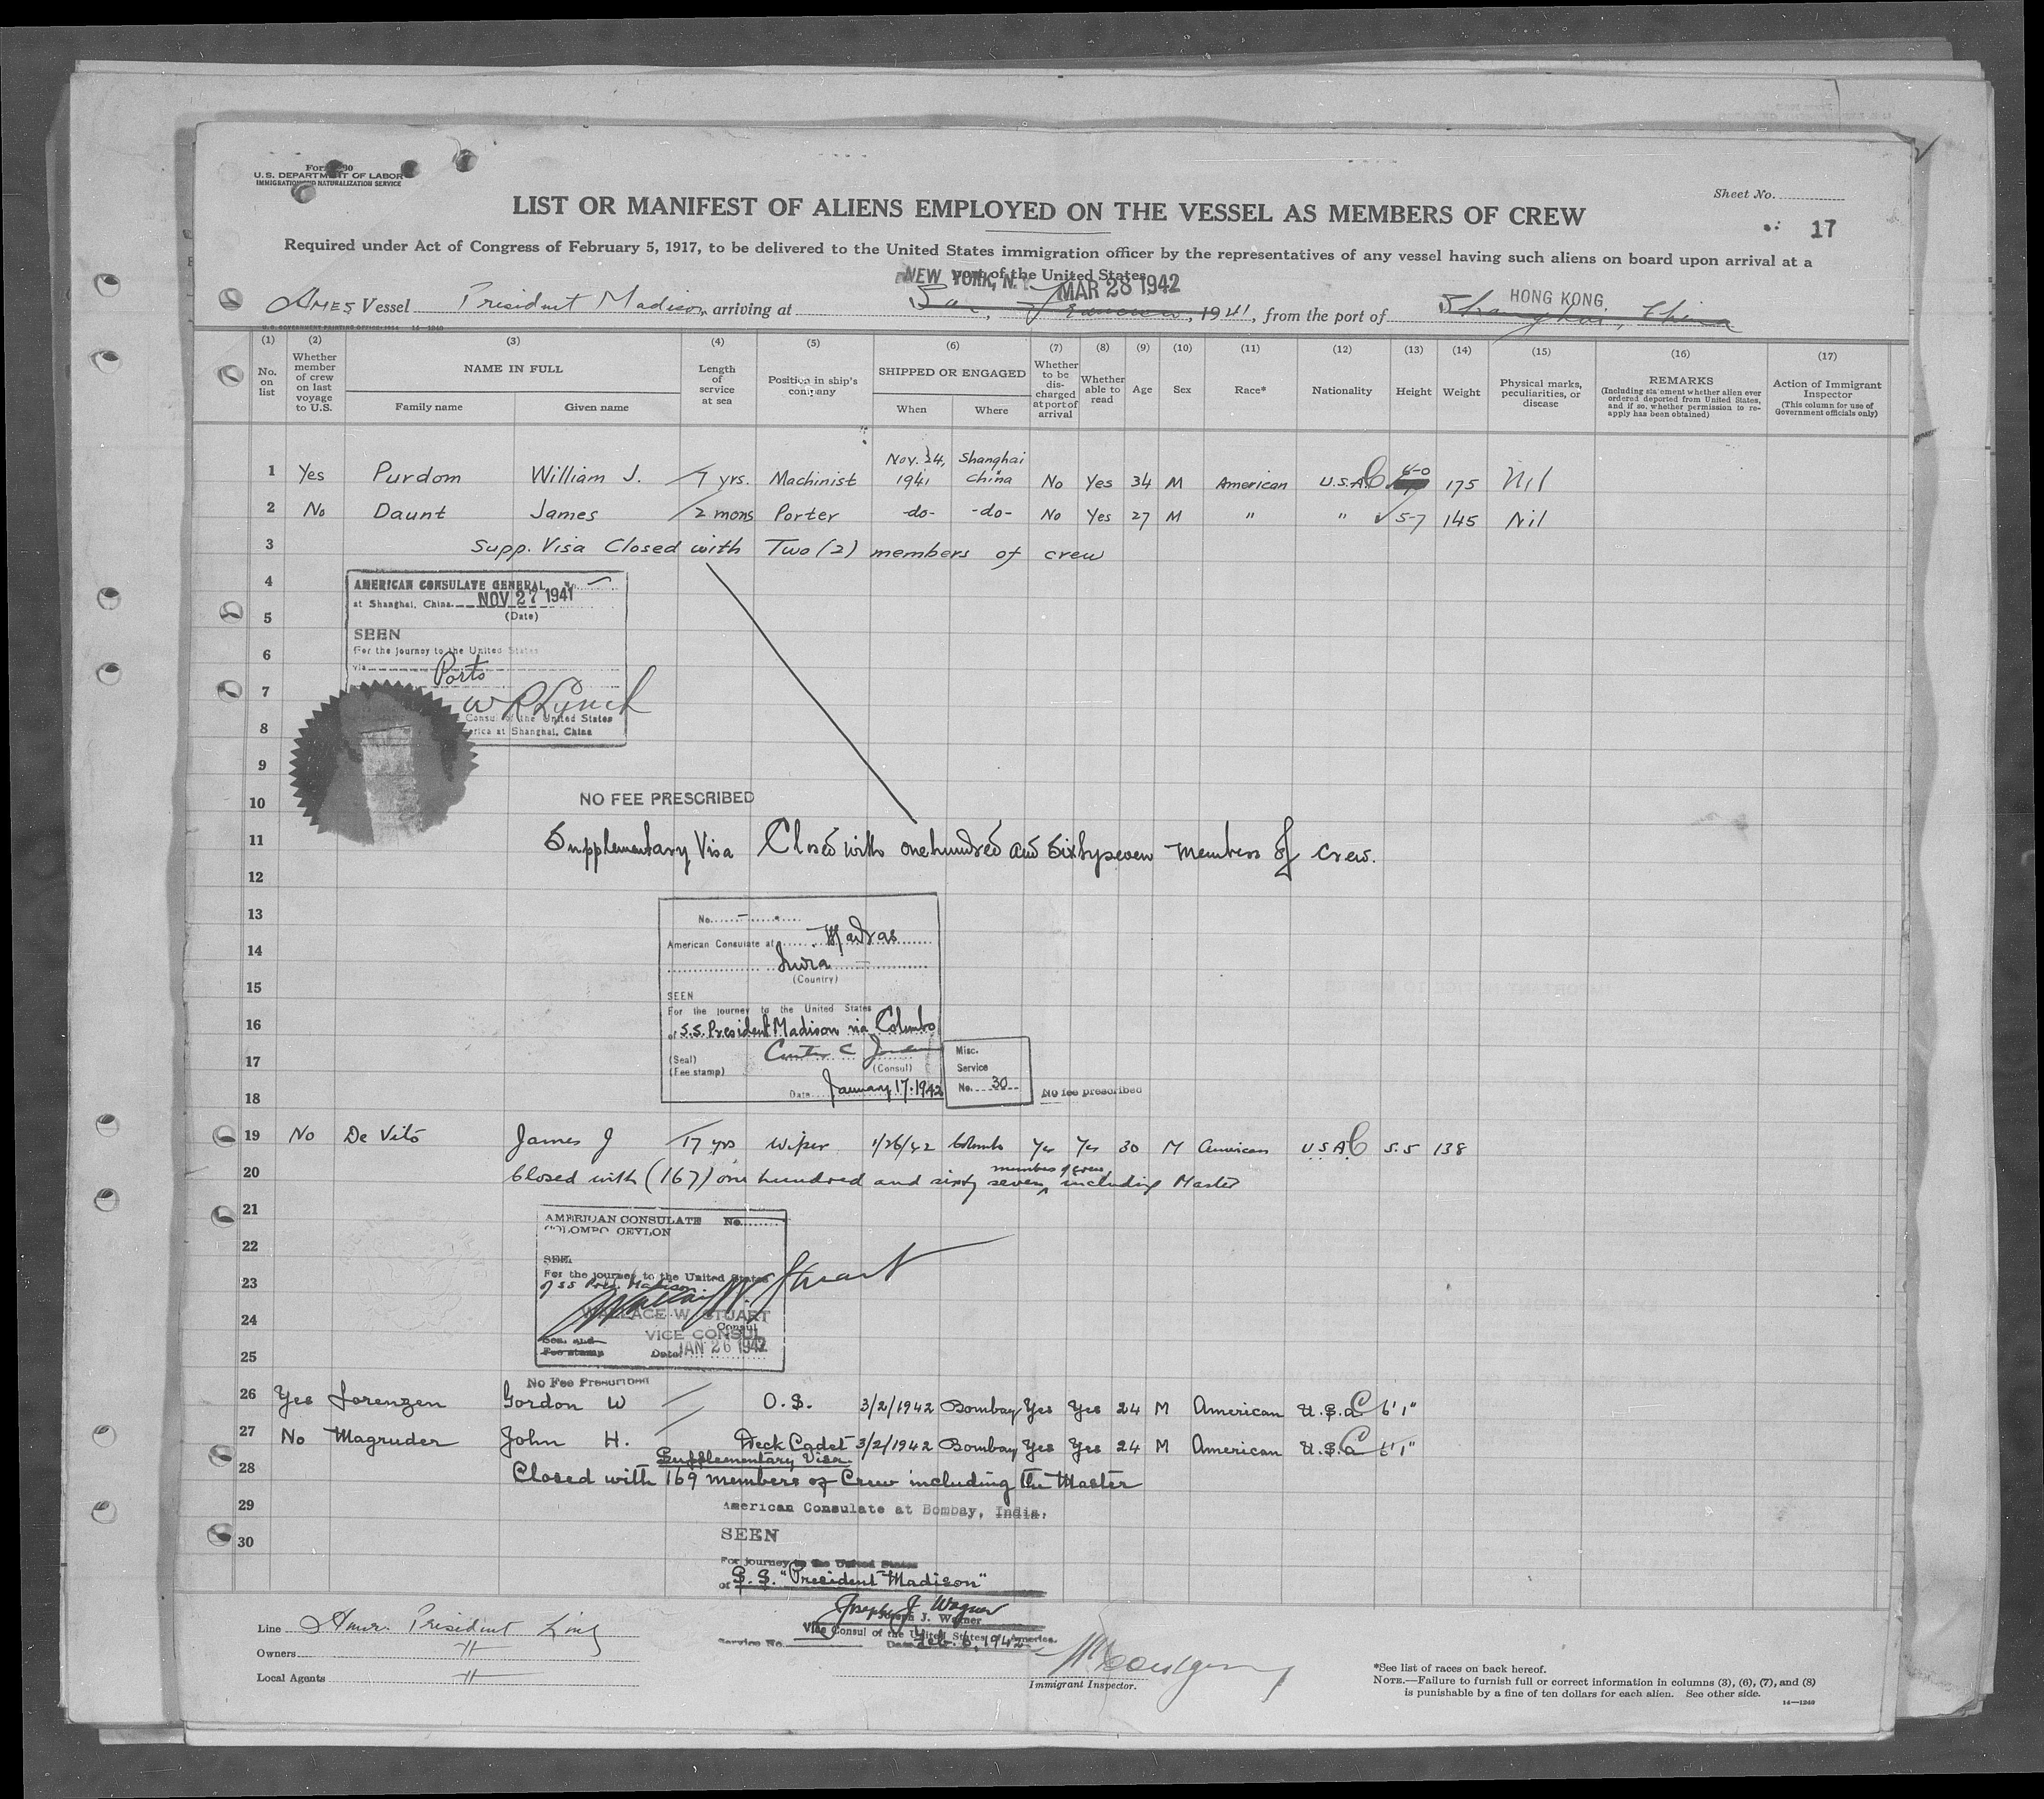 U.S. DEPARTMENT OF LABOR
IMMIGRATION AND NATURALIZATION SERVICE
Sheet No.
LIST OR MANIFEST OF ALIENS EMPLOYED ON THE VESSEL AS MEMBERS OF CREW
17
Required under Act of Congress of February 5, 1917, to be delivered to the United States immigration officer by the representatives of any vessel having such aliens on board upon arrival at a
port of the United States
NEW YORK, N.Y. MAR 28 1942 HONG KONG
Vessel President Madison, arriving at San Francisco, 1941, from the port of Shanghai, China
U.S. GOVERNMENT PRINTING OFFICE: 1934 14-1240
(1) (2) (3) (4) (5) (6) (7) (8) (9) (10) (11) (12) (13) (14) (15) (16) (17)
No. on list
Whether member of crew on last voyage to U.S.
NAME IN FULL
Family name Given name
Length of service at sea
Position in ship's company
SHIPPED OR ENGAGED
When Where
Whether to be discharged at port of arrival
Whether able to read
Age
Sex
Race*
Nationality
Height
Weight
Physical marks, peculiarities, or disease
REMARKS
(Including statement whether alien ever ordered deported from United States, and if so, whether permission to reapply has been obtained)
Action of Immigrant Inspector
(This column for use of Government officials only)
1 Yes Purdom William J. 7 yrs. Machinist Nov. 24, 1941 Shanghai China No Yes 34 M American U.S.A. 6-0 175 Nil
2 No Daunt James 2 mons Porter -do- -do- No Yes 27 M " " 5-7 145 Nil
3 Supp. Visa Closed with Two (2) members of crew
4
AMERICAN CONSULATE GENERAL No.
at Shanghai, China NOV 27 1941
(Date)
5
SEEN
6
For the journey to the United States
via Ports
7
W R Lynch
Consul of the United States
8
America at Shanghai, China
9
10
NO FEE PRESCRIBED
11 Supplementary Visa Closed with one hundred and sixty seven members of crew.
12
13
No.
14
American Consulate at Madras
India
(Country)
15
SEEN
16
For the journey to the United States
of S.S. President Madison via Colombo
17
(Seal) (Consul)
(Fee stamp)
Misc. Service No. 30
18
Date January 17. 1942
No fee prescribed
19 No De Vito James J 17 yrs Wiper 1/26/42 Colombo Yes Yes 30 M American U.S.A. 5.5 138
20 Closed with (167) one hundred and sixty seven members of crew including Master
21
AMERICAN CONSULATE No.
COLOMBO CEYLON
22
SEEN
23
For the journey to the United States
of SS Pres. Madison
Wallace W. Stuart
24
WALLACE W. STUART
Consul
VICE CONSUL
Seal and
Fee stamp Date JAN 26 1942
25
No Fee Prescribed
26 Yes Lorenzen Gordon W O.S. 3/2/1942 Bombay Yes Yes 24 M American U.S.A 6'1"
27 No Magruder John H. Deck Cadet 3/2/1942 Bombay Yes Yes 24 M American U.S.A 6'1"
Supplementary Visa
28 Closed with 169 members of Crew including the Master
29
American Consulate at Bombay, India.
30
SEEN
For journey to the United States
of S.S. "President Madison"
Joseph J. Wagner
Joseph J. Wagner
Vice Consul of the United States of America.
Service No. Date Feb. 6, 1942
Line Amer. President Line
Owners "
Local Agents "
Immigrant Inspector.
*See list of races on back hereof.
NOTE.—Failure to furnish full or correct information in columns (3), (6), (7), and (8)
is punishable by a fine of ten dollars for each alien. See other side.
14—1240